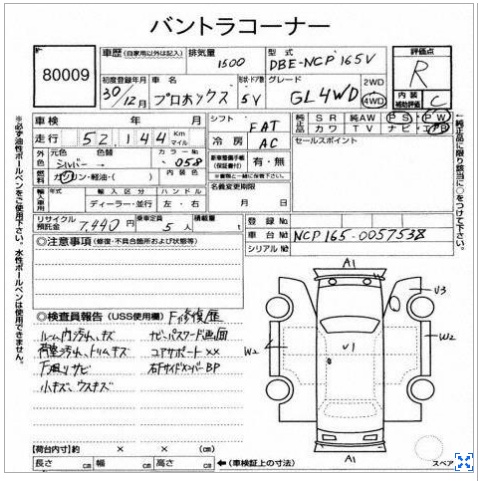 バントラコーナー
80009
車歴 (自家用以外は記入) 排気量 型式 評価点
1500 DBE-NCP165V R
初度登録年月 車名 形状・ドア数 グレード 2WD 内装補助評価 C
30/12月 プロボックス 5V GL4WD 4WD
車検 年 月 シフト FAT 純正品 SR 純AW PS PW
走行 52,144 Km マイル 冷房 AC カワ TV ナビ・エアB
外色 元色 色替 カラーNo. セールスポイント
シルバー 058 新車整備手帳(保証書付) 有・無
燃料 ガソリン・軽油・( ) 内装色 ※書類と一緒に保管下さい。
輸入車用 年式 輸入区分 ハンドル 名義変更期限
ディーラー・並行 左・右 月 日
リサイクル預託金 7,440円 乗車定員 5人 積載量 t
登録No.
車台No. NCP165-0057538
シリアルNo.
※必ず油性ボールペンをご使用下さい。水性ボールペンは使用できません。
↑純正品に限り該当に○をつけて下さい。
◎注意事項 (修復・不具合箇所および状態等)
◎検査員報告 (USS使用欄) F修復歴
ルーム内汚れ、キズ ナビ、パスワード画面
荷室汚れ、トリムキズ コアサポート××
下廻りサビ 右Fサイドメンバー BP
小キズ、ウスキズ
A1
V3
W2
V1
W2
A1
スペア
【荷台内寸】約 × × (cm)
長さ cm 幅 cm 高さ cm ←(車検証上の寸法)